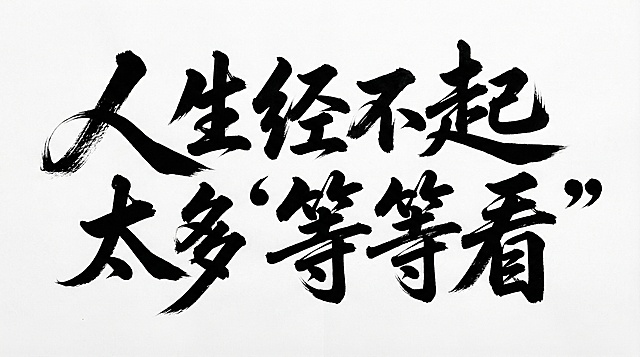 人生经不起
太多‘等等看”